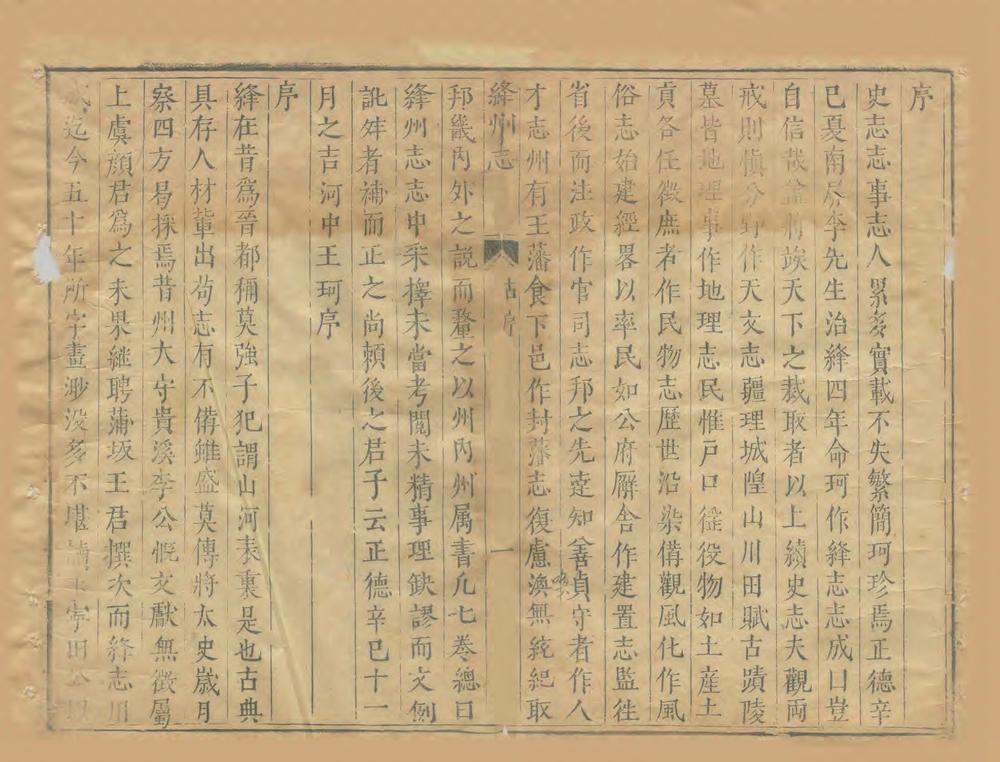 序
史志志事志人累多實載不失繁簡珂珍焉正德辛
巳夏南㞐李先生治絳四年命珂作絳志志成曰豈
自信哉論將竢天下之裁取者以上續史志夫觀兩
戒則慎分野作天文志疆理城隍山川田賦古蹟陵
墓皆地理事作地理志民惟戶口徭役物如土產土
貢各任徵庶者作民物志歷世沿染備觀風化作風
俗志始建經畧以率民如公府廨舍作建置志監徃
省後而注政作官司志邦之先達知善貞守者作人
才志州有王藩食下邑作封藩志復慮渙無統紀取
絳州志 古序 一
邦畿内外之説而釐之以州内州属書凡七卷總曰
絳州志志中采擇未當考閱未精事理缺謬而文例
訛舛者補而正之尚賴後之君子云正德辛巳十一
月之吉河中王珂序
序
絳在昔爲晉都稱莫強子犯謂山河表裏是也古典
具存人材輩出茍志有不備雖盛莫傳將太史嵗月
察四方曷採焉昔州大守貴溪李公慨文獻無徵屬
上虞顔君爲之未果継聘蒲坂王君撰次而絳志用
成迄今五十年所字畫渺没多不堪讀 田公